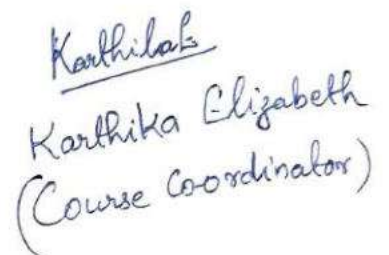 KarthikaE
Karthika Elizabeth
(Course Coordinator)